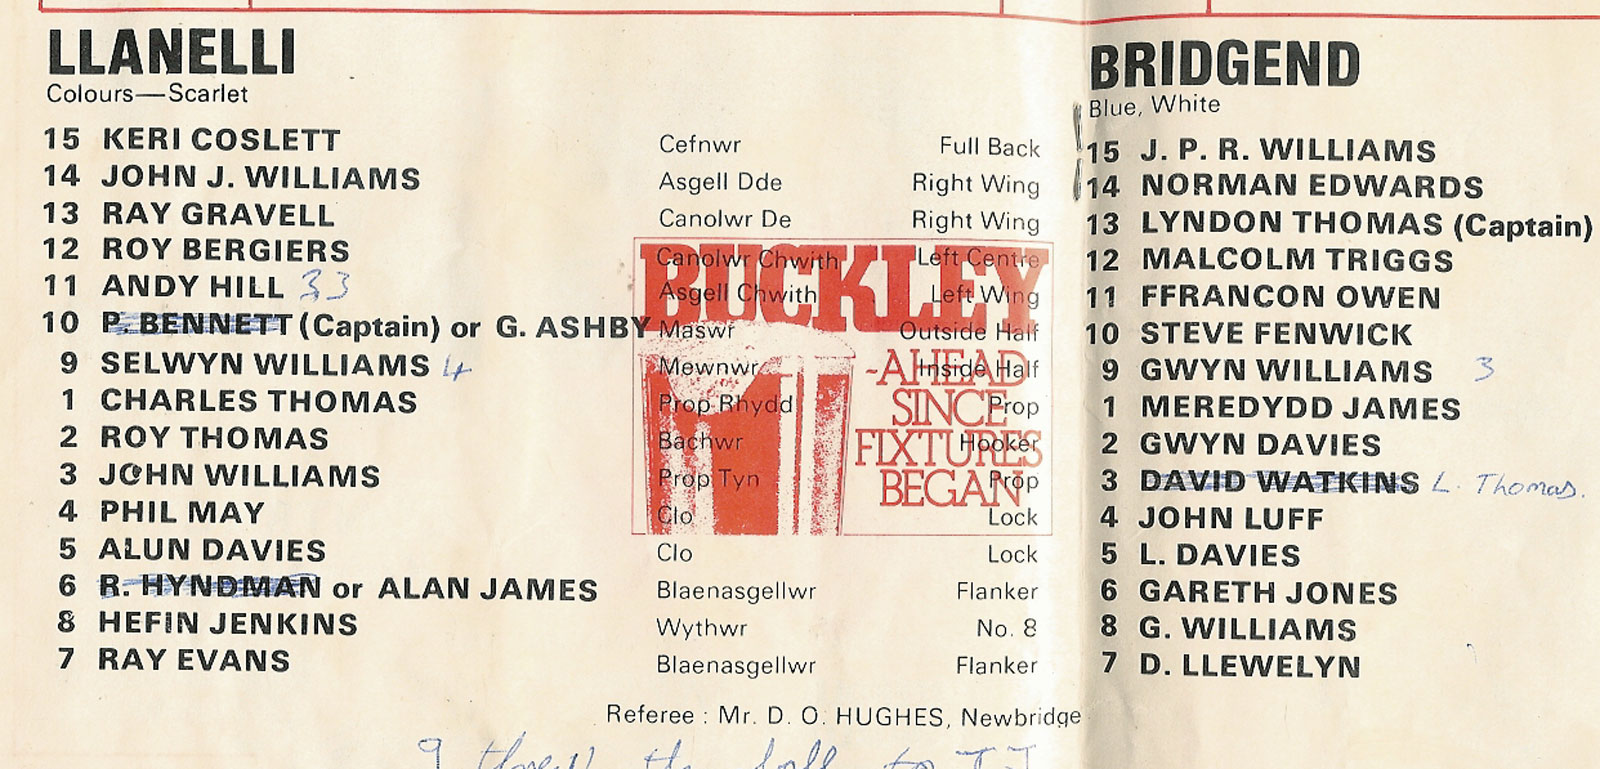 LLANELLI BRIDGEND
Colours—Scarlet Blue, White
15 KERI COSLETT Cefnwr Full Back 15 J. P. R. WILLIAMS
14 JOHN J. WILLIAMS Asgell Dde Right Wing 14 NORMAN EDWARDS
13 RAY GRAVELL Canolwr De Right Wing 13 LYNDON THOMAS (Captain)
12 ROY BERGIERS Canolwr Chwith Left Centre 12 MALCOLM TRIGGS
11 ANDY HILL 33 Asgell Chwith Left Wing 11 FFRANCON OWEN
10 P. BENNETT (Captain) or G. ASHBY Maswr Outside Half 10 STEVE FENWICK
9 SELWYN WILLIAMS 4 Mewnwr Inside Half 9 GWYN WILLIAMS 3
1 CHARLES THOMAS Prop Rhydd Prop 1 MEREDYDD JAMES
2 ROY THOMAS Bachwr Hooker 2 GWYN DAVIES
3 JOHN WILLIAMS Prop Tyn Prop 3 DAVID WATKINS L. Thomas.
4 PHIL MAY Clo Lock 4 JOHN LUFF
5 ALUN DAVIES Clo Lock 5 L. DAVIES
6 R. HYNDMAN or ALAN JAMES Blaenasgellwr Flanker 6 GARETH JONES
8 HEFIN JENKINS Wythwr No. 8 8 G. WILLIAMS
7 RAY EVANS Blaenasgellwr Flanker 7 D. LLEWELYN
BUCKLEY
-AHEAD
SINCE
FIXTURES
BEGAN
Referee : Mr. D. O. HUGHES, Newbridge
I threw the ball to JJ